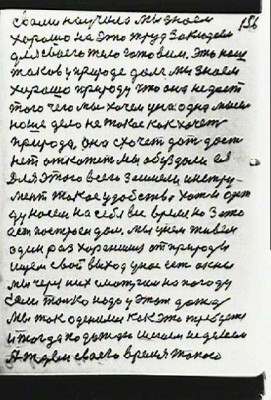 156
сами научила мы знаем
хорошо на это труд закладаем
для своего тело готовим. Это наш
таков у природе долг мы знаем
хорошо природу что она не даст
того чего мы хочем у нас одна мысль
наше дело не такое как хочет
природа, она схочет даст даст
нет откажет мы обуздали ея
для этого всего заимели инстру-
мент такое удобство хоть и одеж
ду носем на себя все время но это
ест построен дом. мы уже живем
один раз хоронимся от природы
ищем свой выход у нас есть окны
мы через них смотрим на погоду
если только надо у этот дожд
мы так оденими как это требуется
и тогда по дождю шагаем не делаем
А ждем своего время такого